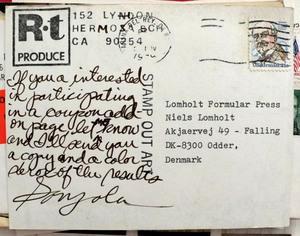 R.t
PRODUCE
152 LYNDON
HERMOSA BCH
CA 90254
If you a interested
in participating
in a coupon add-
on page let know
me
and I'll send you
a copy and a color
xerox of the results
STAMP OUT ART
Lomholt Formular Press
Niels Lomholt
Akjaervej 49 - Falling
DK-8300 Odder,
Denmark